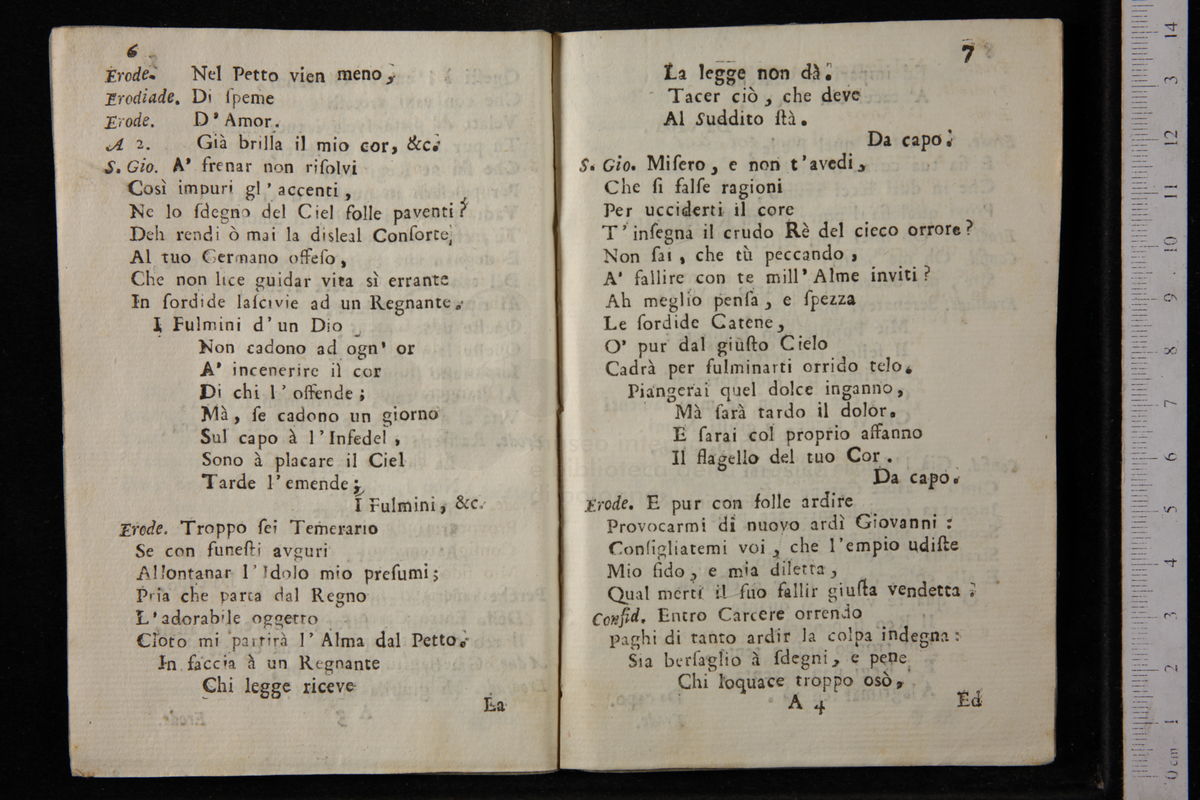 6
Erode. Nel Petto vien meno;
Erodiade. Di ſpeme
Erode. D' Amor.
A 2. Già brilla il mio cor, &c.
S. Gio. A' frenar non riſolvi
Così impuri gl' accenti,
Ne lo ſdegno del Ciel folle paventi?
Deh rendi ò mai la disleal Conſorte,
Al tuo Germano offeſo,
Che non lice guidar vita sì errante
In ſordide laſcivie ad un Regnante.
I Fulmini d' un Dio
Non cadono ad ogn' or
A' incenerire il cor
Di chi l' offende;
Mà, ſe cadono un giorno
Sul capo à l' Infedel,
Sono à placare il Ciel
Tarde l' emende;
I Fulmini, &c.
Erode. Troppo ſei Temerario
Se con funeſti avguri
Allontanar l' Idolo mio preſumi;
Pria che parta dal Regno
L' adorabile oggetto
Cloto mi partirà l' Alma dal Petto.
In faccia à un Regnante
Chi legge riceve
La
7
La legge non dà.
Tacer ciò, che deve
Al Suddito ſtà.
Da capo.
S. Gio. Miſero, e non t' avedi,
Che ſi falſe ragioni
Per ucciderti il core
T' inſegna il crudo Rè del cieco orrore?
Non ſai, che tù peccando,
A' fallire con te mill' Alme inviti?
Ah meglio penſa, e ſpezza
Le ſordide Catene,
O' pur dal giùſto Cielo
Cadrà per fulminarti orrido telo.
Piangerai quel dolce inganno,
Mà ſarà tardo il dolor.
E ſarai col proprio affanno
Il flagello del tuo Cor.
Da capo.
Erode. E pur con folle ardire
Provocarmi di nuovo ardì Giovanni:
Conſigliatemi voi, che l' empio udiſte
Mio fido, e mia diletta,
Qual merti il ſuo fallir giuſta vendetta?
Confid. Entro Carcere orrendo
Paghi di tanto ardir la colpa indegna:
Sia berſaglio à ſdegni, e pene
Chi loquace troppo osò,
A 4
Ed
0 cm 1 2 3 4 5 6 7 8 9 10 11 12 13 14